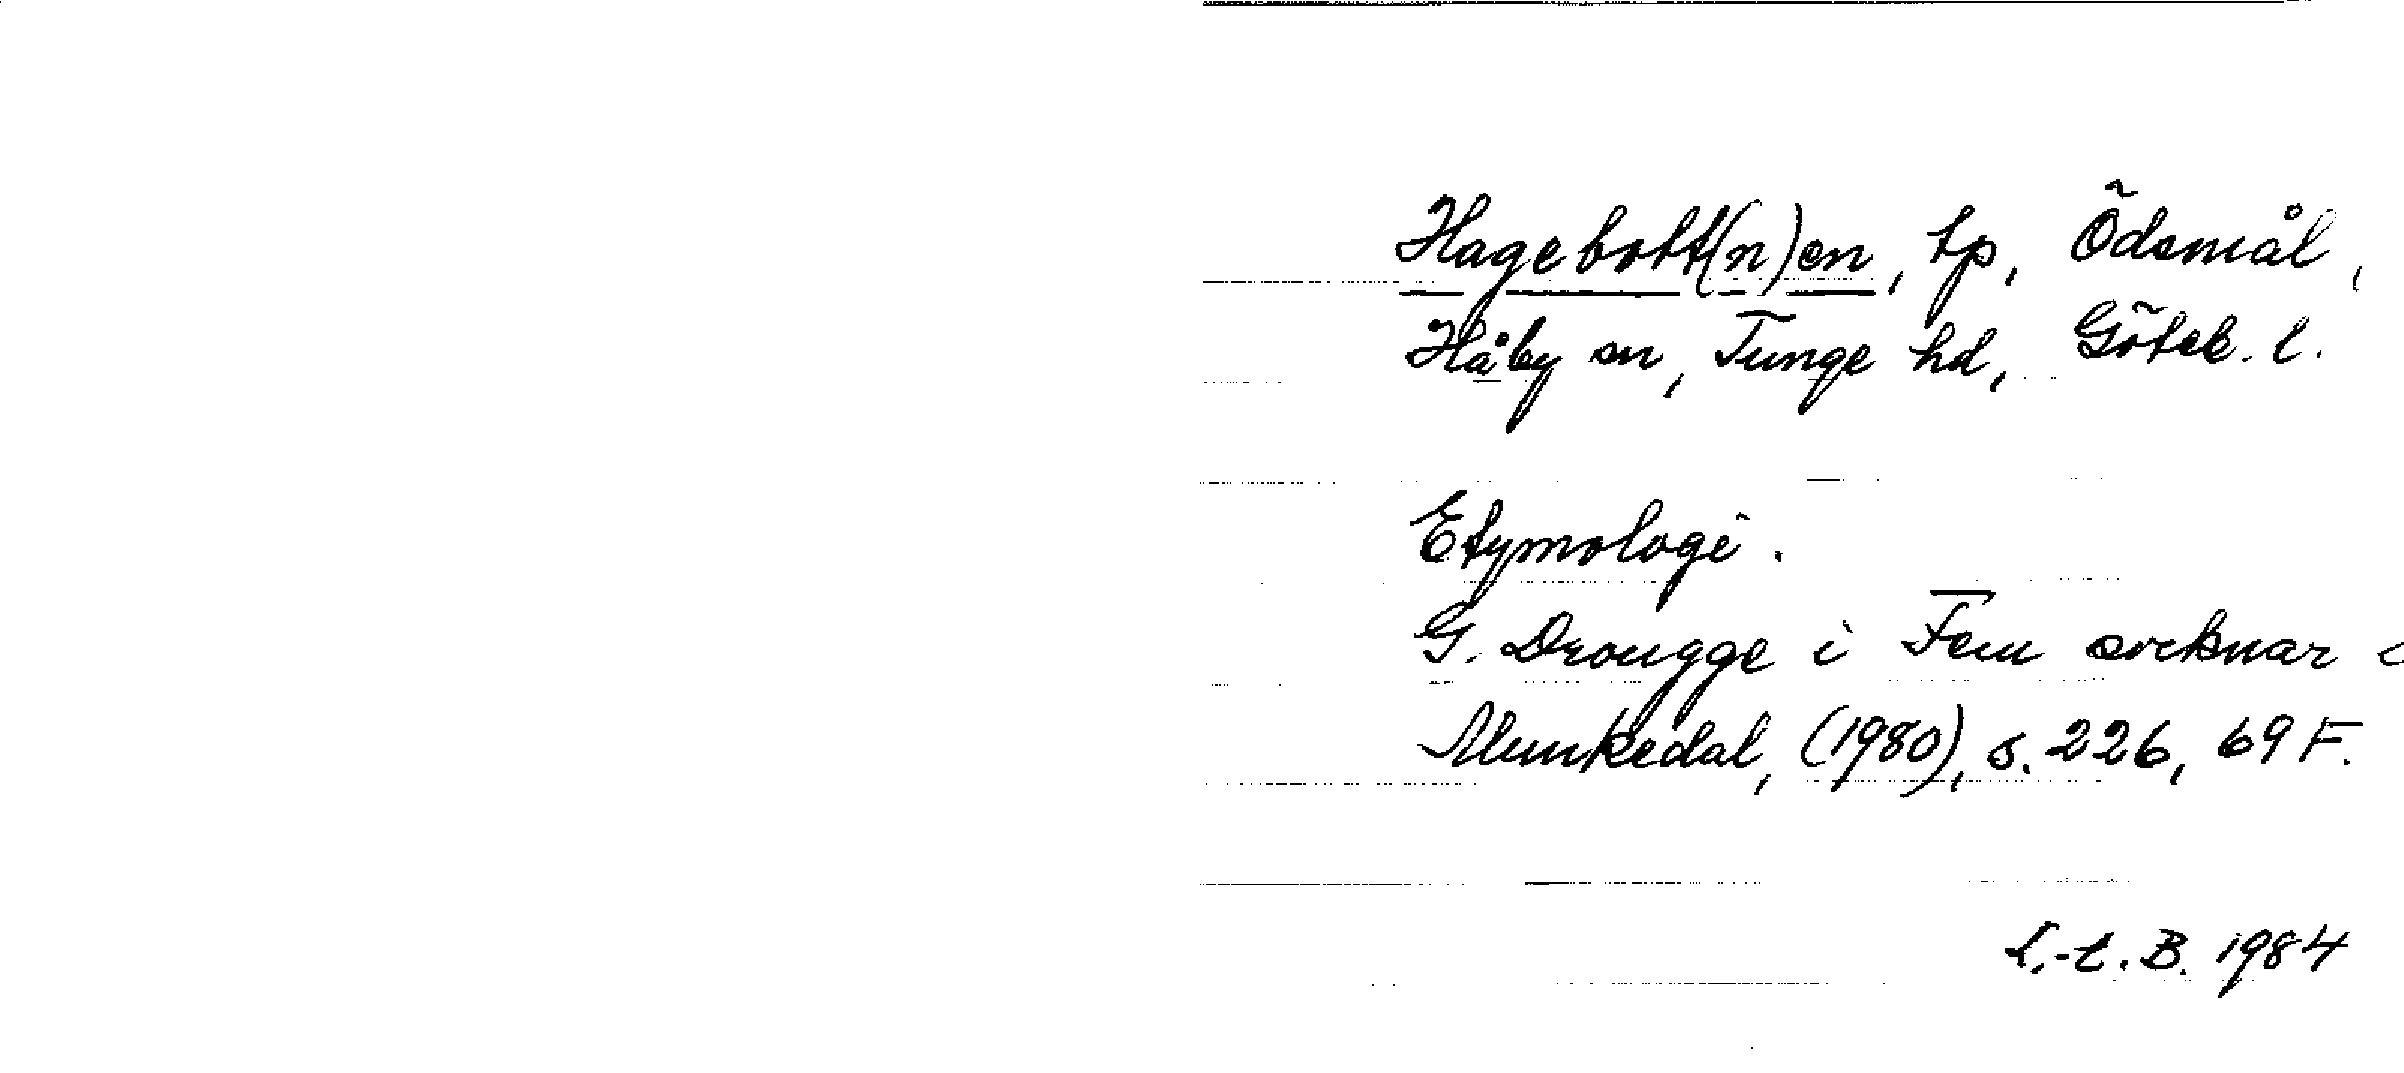 Hagebott(n)en, tp, Ödsmål,
Håby sn, Tunge hd, Göteb. l.
Etymologi.
G. Drougge i Fem socknar i
Munkedal, (1980), s. 226, 69 F.
I.-l. B. 1984